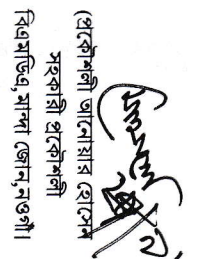 (প্রকৌশলী আনোয়ার হোসেন
সহকারী প্রকৌশলী
বিএমডিএ, মান্দা জোন, নওগাঁ।